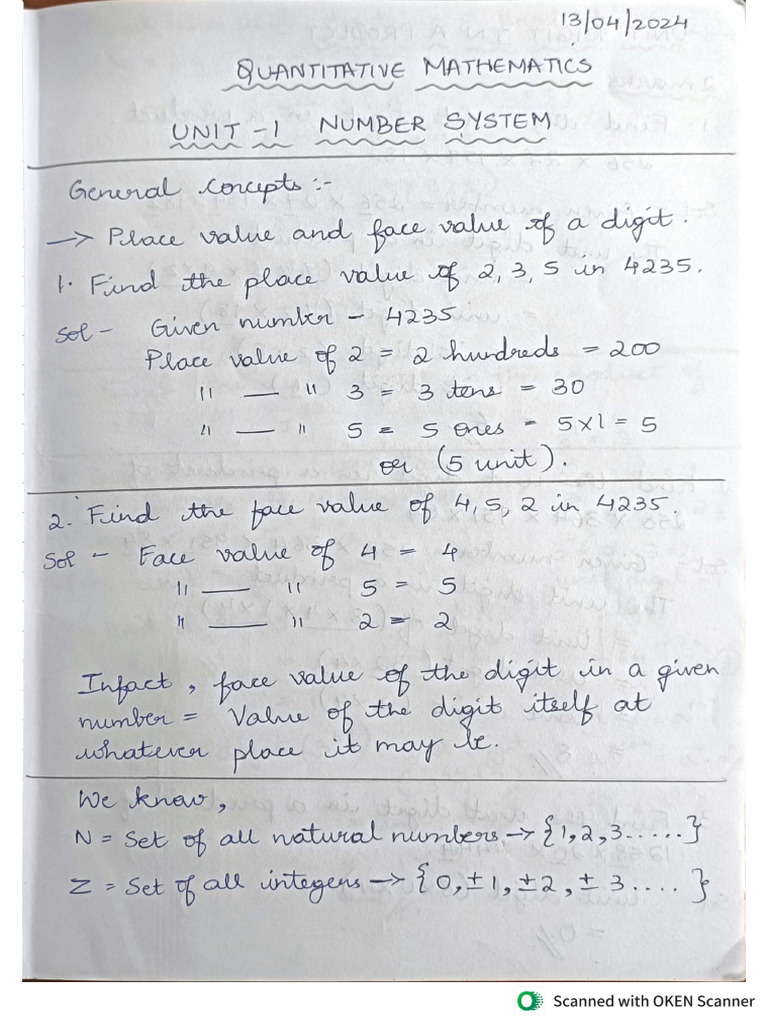 13/04/2024
QUANTITATIVE MATHEMATICS
UNIT -1 NUMBER SYSTEM
General concepts :-
→ Place value and face value of a digit.
1. Find the place value of 2, 3, 5 in 4235.
Sol - Given number - 4235
Place value of 2 = 2 hundreds = 200
" — " 3 = 3 tens = 30
" — " 5 = 5 ones = 5x1 = 5
or (5 unit).
2. Find the face value of 4, 5, 2 in 4235.
Sol - Face value of 4 = 4
" — " 5 = 5
" — " 2 = 2
Infact, face value of the digit in a given
number = Value of the digit itself at
whatever place it may be.
We know,
N = Set of all natural numbers → {1, 2, 3.....}
Z = Set of all integers → {0, ±1, ±2, ± 3....}
Scanned with OKEN Scanner